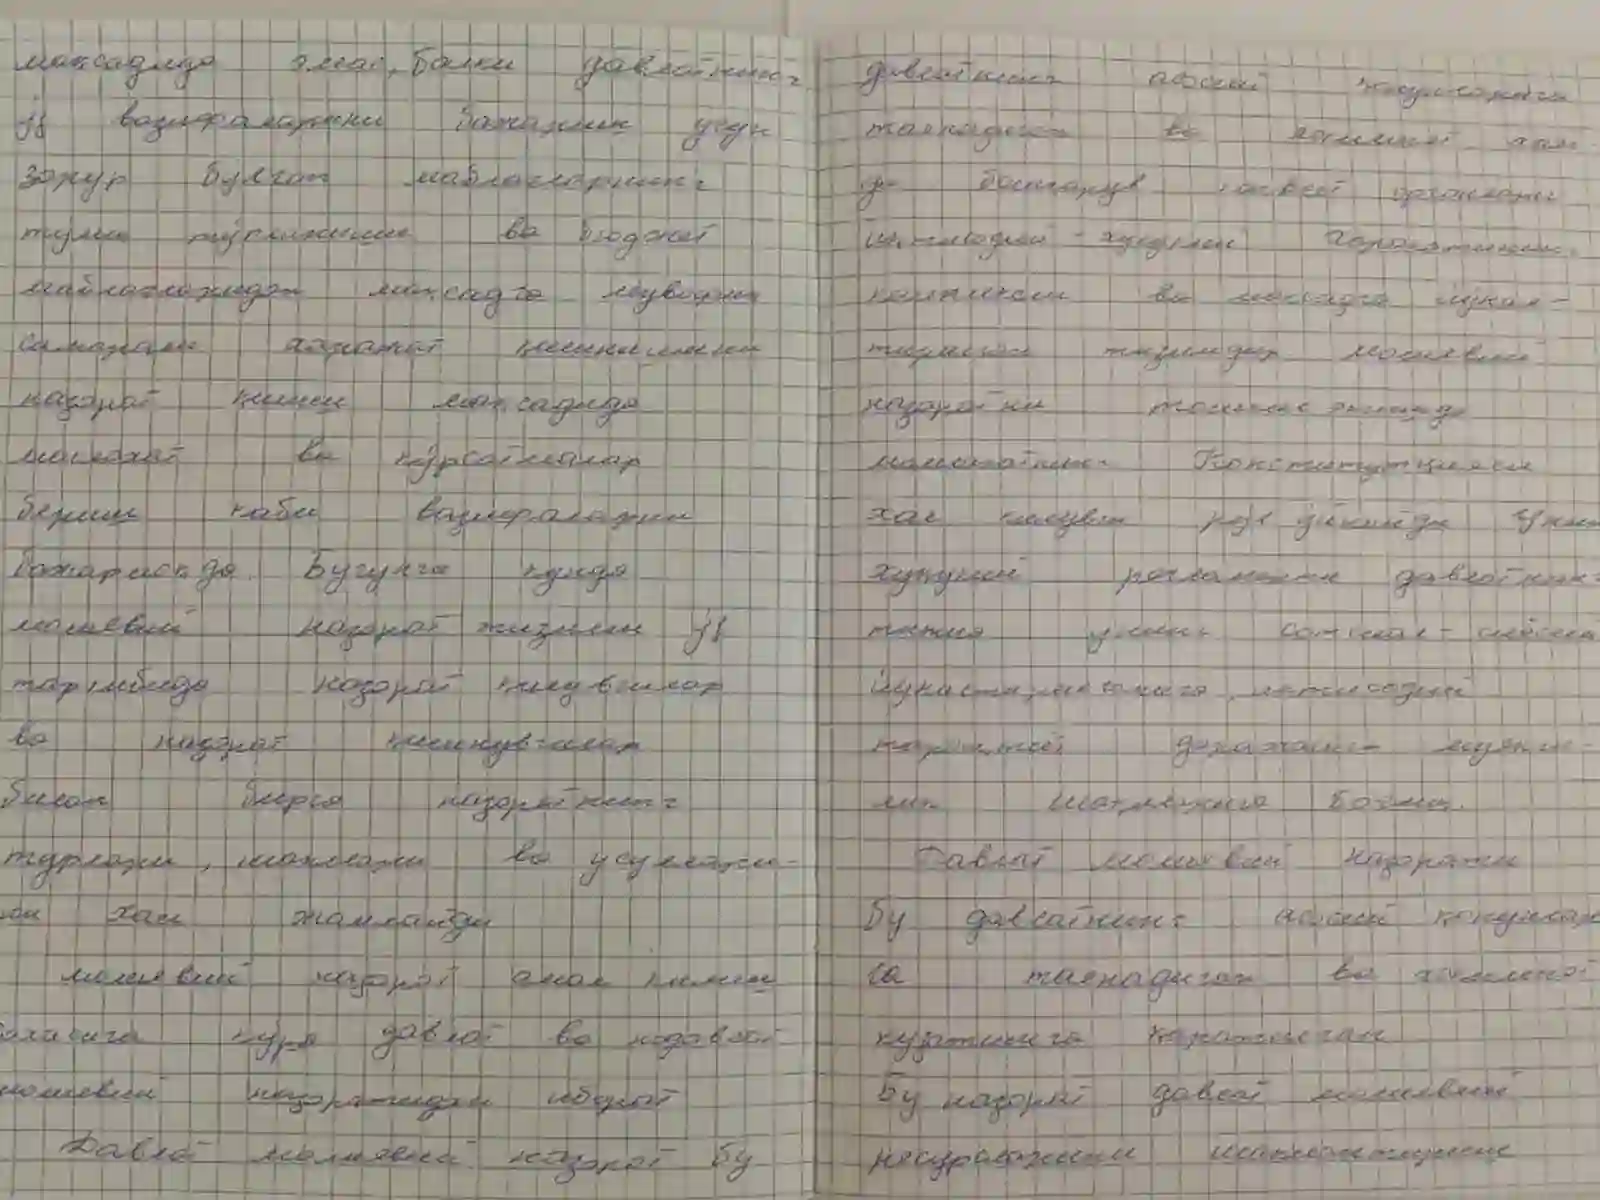 мақсадида эмас, балки давлатнинг
ўз вазифаларини бажариш учун
зарур бўлган маблағларнинг
тулиқ ва бюджет
маблағларидан мақсадга мувофиқ
самарали харажат қилинишини
назорат қилиш мақсадида
маслахат ва кўрсатмалар
бериш каби вазифаларни
бажарисида. Бугунги кунда
молиявий назорат тизими ўз
таркибида назорат қилувчилар
ва назорат қилинувчилар
билан бирга назоратнинг
турлари, шакллари ва усуллари-
ни хам жамлайди
молиявий назорат амал қилиш
кўра давлат ва нодавлат
молиявий назоратидан иборат
Давлат молиявий назорат бу
давлатнинг асосий қонунларига
таянадиган ва хам-
да бошқарув органлари
иқтисодий-хуқуқий
ва мақсадга йўнал-
тирилган тизимдир молиявий
назоратни ташкил этишда
мамлакатнинг Конституцияси
хал қилувчи рол ўйнайди Унинг
хуқуқий давлатнинг
типига унинг социал-сиёсий
йуналтирилганлигига, иқтисодий
тараққиёт даражаси мулкчи-
лик шаклларига боғлиқ.
Давлат молиявий назорати
Бу давлатнинг асосий қонунлари
га таянадиган ва
кузатишга қаратилган
Бу назорат давлат молиявий
ресурсларини шакллантириш